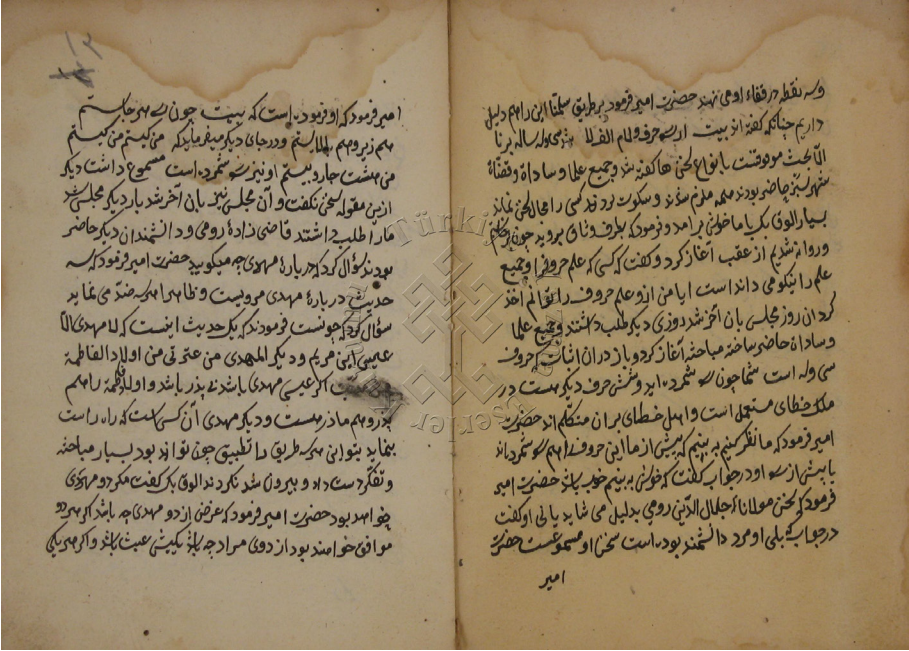 وسه نقطه در قفاء او می نهند حضرت امیر فرمود بر طریق سلمنا این را هم دلیل
داریم چنانکه گفته اند بیت
الابحث موقوفست با نواع سخن ها گفته شد و جمیع علما و سادات و قضاة
شهر تبریز حاضر بودند همه ملزم شدند و سکوت کردند کسی را مجال سخن نماند
بسیار الوق بک با ما خوش برآمد و فرمود که بطرف وثاق بروید چون
و روانه شدیم از عقب آغاز کرد و گفت که کسی که علم حروف را و جمیع
علم را نیکو می دانداست ایا من ازو علم حروف را توانم اخذ
کرد ان روز مجلس بان آخر شد روزی دیگر طلب داشتند و جمیع علما
و سادات حاضر ساخته مباحثه آغاز کرد و باز در ان اثنا که حروف
سی و له است شما چون سه شمرده اید و شش حرف دیگر هست در
ملک خطای مستعمل است و اهل خطای بران متکلم اند حضرت
امیر فرمود که ما نظر کنیم به بینیم که پیش از ما این حروف را هم که شمرده اند
یا پیش از سه او در جواب گفت که خوش به بینم خوب باشد حضرت امیر
فرمود که سخن مولانا جلال الدین رومی بدلیل می شاید یا نی او گفت
در جواب که بلی او مرد دانشمند بوده است سخن او مسموعست حضرت
امیر
امیر فرمود که او فرموده است که بیت چون سی هر جا که هستم
هم زیر و هم بالاستم و در جای دیگر میفرماید که من کیستم من کیستم
من هشت چار و بیستم او نیز سه شمرده است مسموع داشت دیگر
ازین مقوله سخن نگفت و آن مجلس نیز بان آخر شد بار دیگر مجلس شد
ما را طلب داشتند قاضی زادۀ رومی و دانشمندان دیگر حاضر
بودند سؤال کرد که دربارۀ مهدی چه میگویید حضرت امیر فرمود که سه
حدیث دربارۀ مهدی مرویست و ظاهرا هر سه ضد می نماید
سؤال کرد چونست فرمودند که یک حدیث اینست که لا مهدی الا
عیسی ابن مریم و دیگر المهدی من عترتی من اولاد الفاطمة
اگر عیسی مهدی باشد بی پدر باشد و اولاد فاطمة را هم
پدر و هم مادر هست و دیگر مهدی آن کسی است که راه راست
بنماید بتو این هر سه طریق را تطبیق چون تواند بود بسیار مباحثه
و تفکر دست داد و بیرون شد نکردند الوق بک گفت مگر دو مهدی
خواهد بود حضرت امیر فرمود که غرض از دو مهدی چه باشد اگر هر دو
موافق خواهند بود از دوی مراد چه باشد یکیش عبث باشد و اگر هر یکی